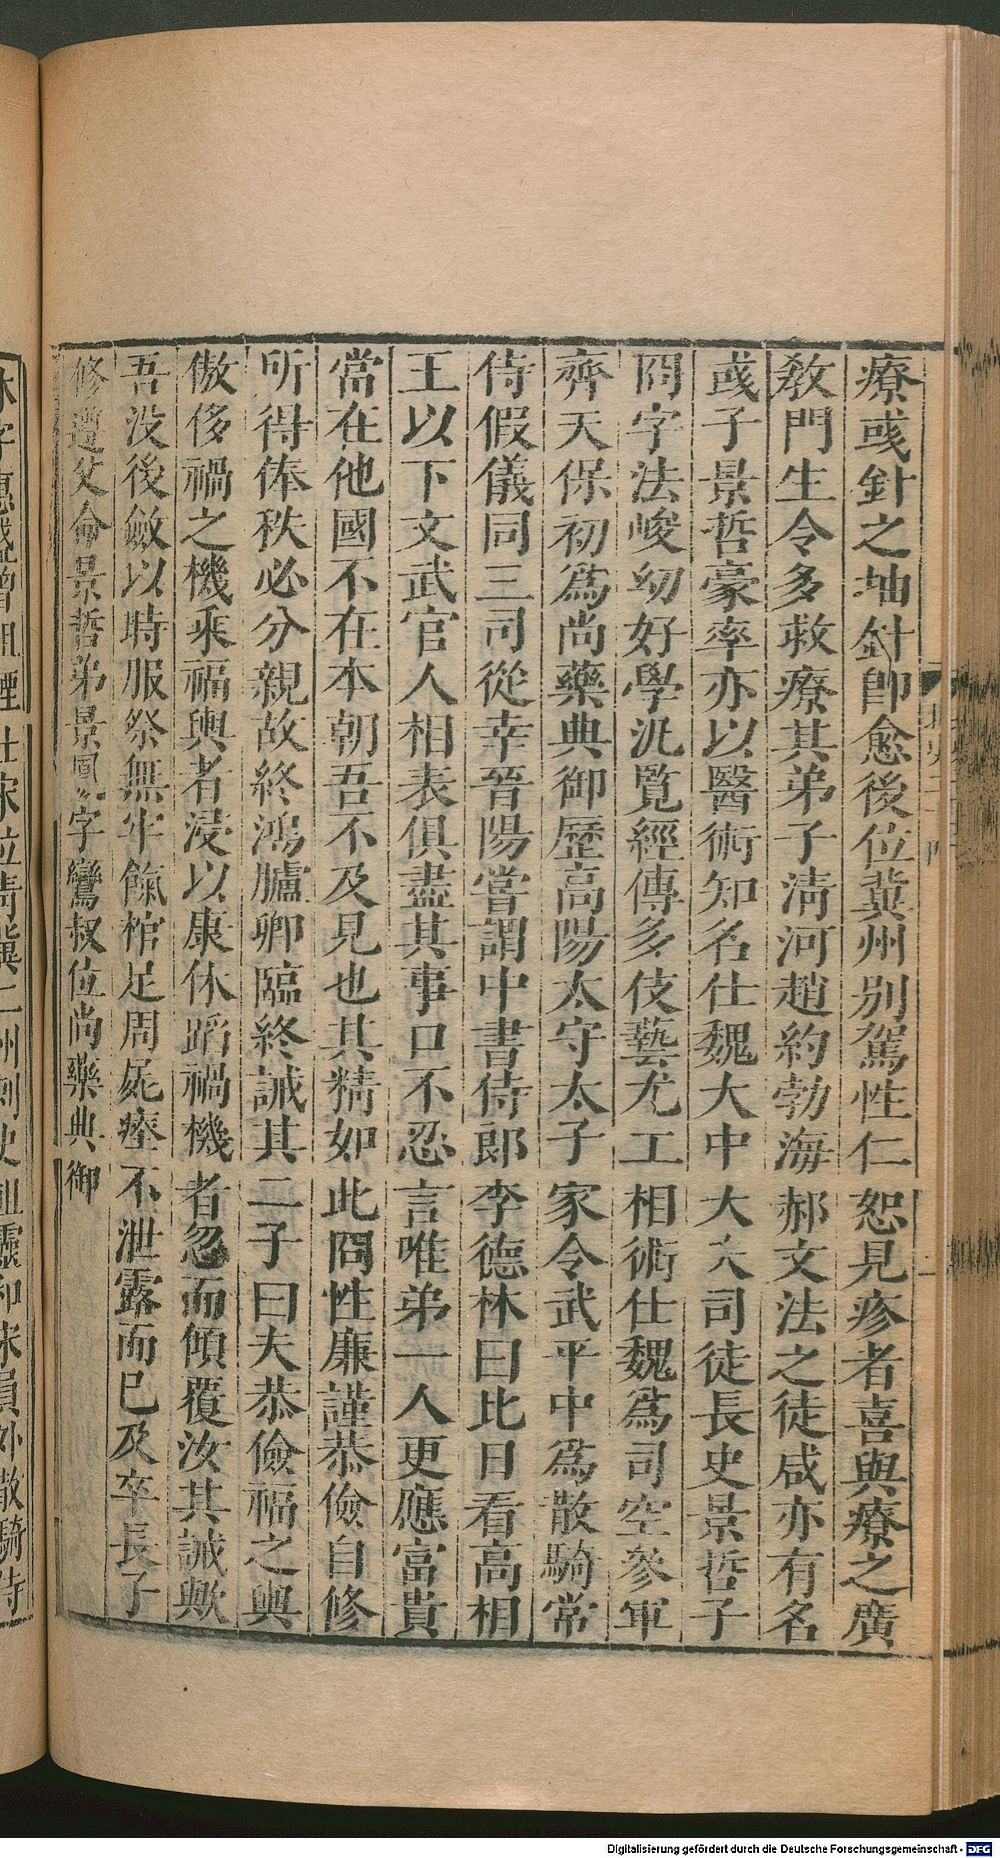 療彧針之抽針即愈後位冀州別駕性仁恕見疹者喜與療之廣
敎門生令多救療其弟子淸河趙約勃海郝文法之徒咸亦有名
彧子景哲豪率亦以醫術知名仕魏大中大夫司徒長史景哲子
冏字法峻幼好學汎覧經傳多伎藝尤工相術仕魏爲司空參軍
齊天保初爲尚藥典御歷高陽太守太子家令武平中爲散騎常
侍假儀同三司從幸晉陽嘗謂中書侍郎李德林曰比日看高相
王以下文武官人相表俱盡其事口不忍言唯弟一人更應富貴
當在他國不在本朝吾不及見也其精如此冏性廉謹恭儉自修
所得俸秩必分親故終鴻臚卿臨終誡其二子曰夫恭儉福之輿
傲侈禍之機乘福輿者浸以康休蹈禍機者忽而傾覆汝其誡歟
吾没後斂以時服祭無牢餼棺足周屍瘞不泄露而已及卒長子
修遵父命景哲弟景鳳字鸞叔位尚藥典御
Digitalisierung gefördert durch die Deutsche Forschungsgemeinschaft - DFG